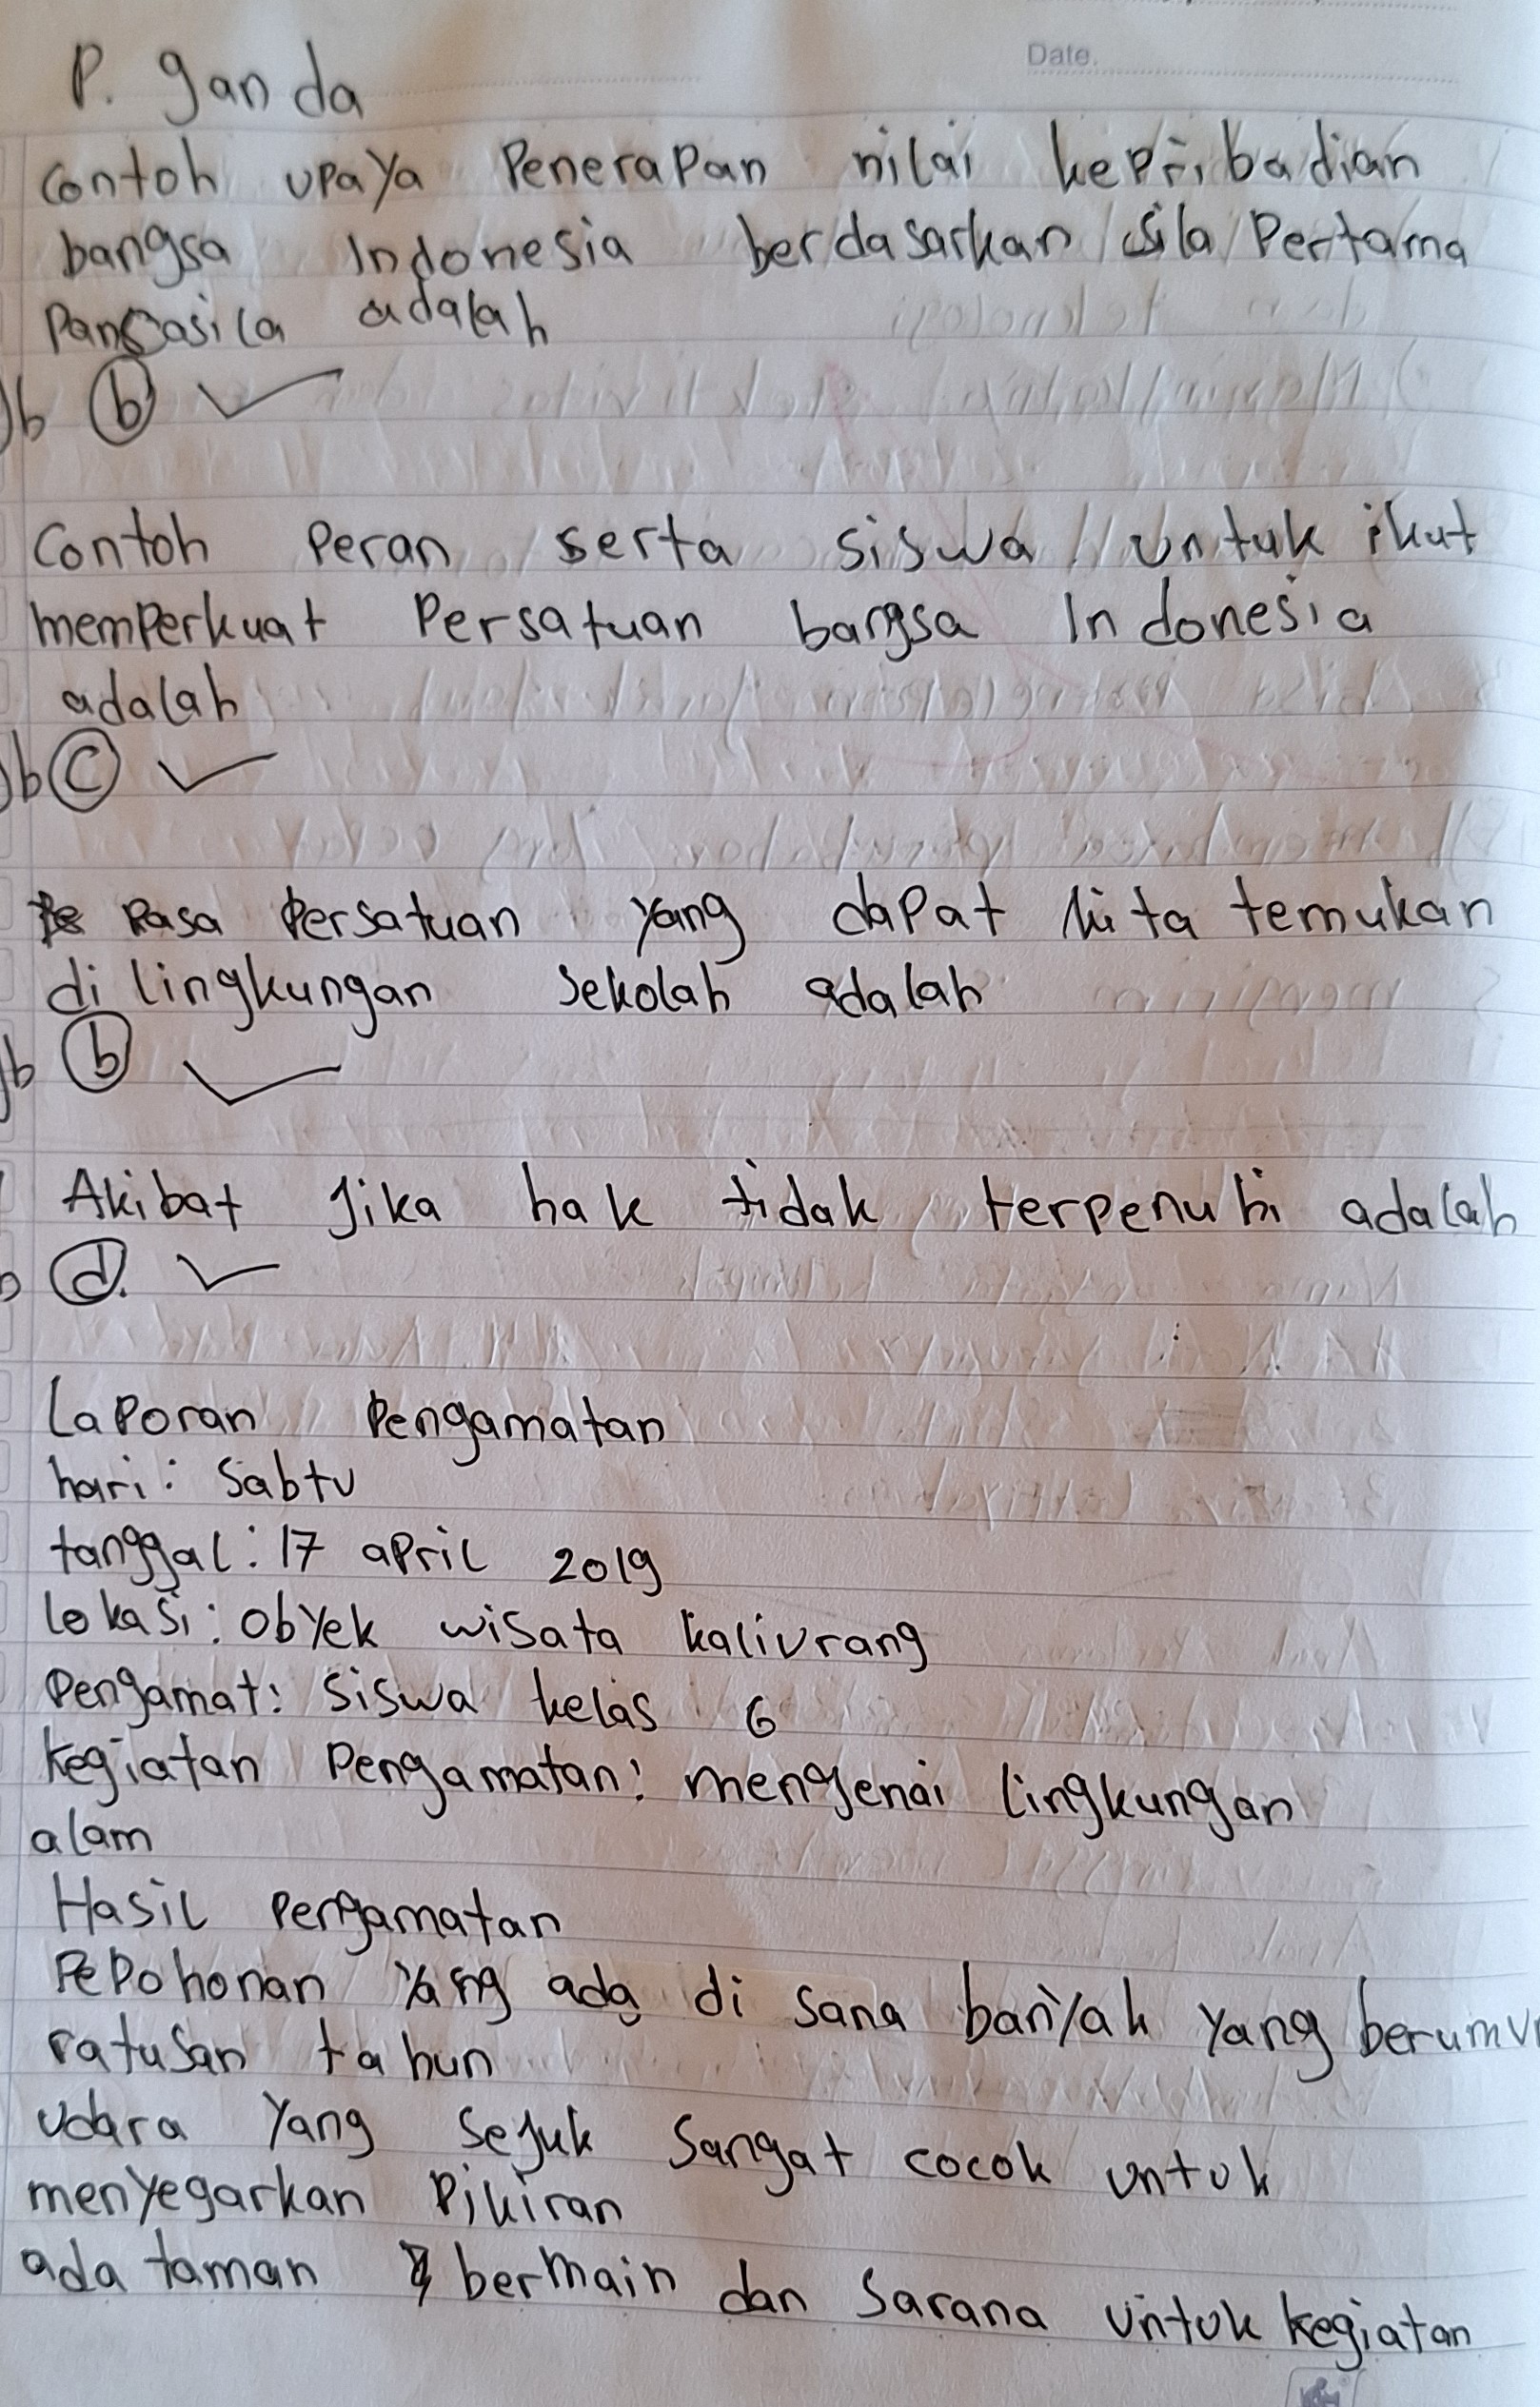 Date.
P. ganda
Contoh upaya Penerapan nilai kepribadian
bangsa Indonesia berdasarkan sila Pertama
Pancasila adalah
Jb b
Contoh Peran serta siswa untuk ikut
memperkuat Persatuan bangsa Indonesia
adalah
Jb C
Rasa Persatuan yang dapat kita temukan
di lingkungan sekolah adalah
Jb b
Akibat Jika hak tidak terpenuhi adalah
b d.
Laporan Pengamatan
hari: Sabtu
tanggal: 17 april 2019
lokasi: obyek wisata kaliurang
Pengamat: siswa kelas 6
kegiatan Pengamatan: mengenai lingkungan
alam
Hasil Pengamatan
Pepohonan yang ada di sana banyak yang berumu
ratusan tahun
Udara Yang sejuk sangat cocok untuk
menyegarkan Pikiran
ada taman bermain dan sarana untuk kegiatan